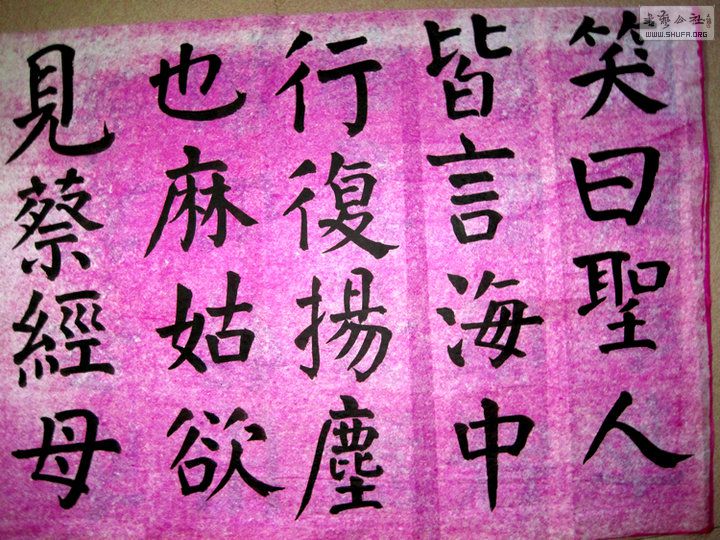 笑曰聖人
皆言海中
行復揚塵
也麻姑欲
見蔡經母
WWW.SHUFA.ORG